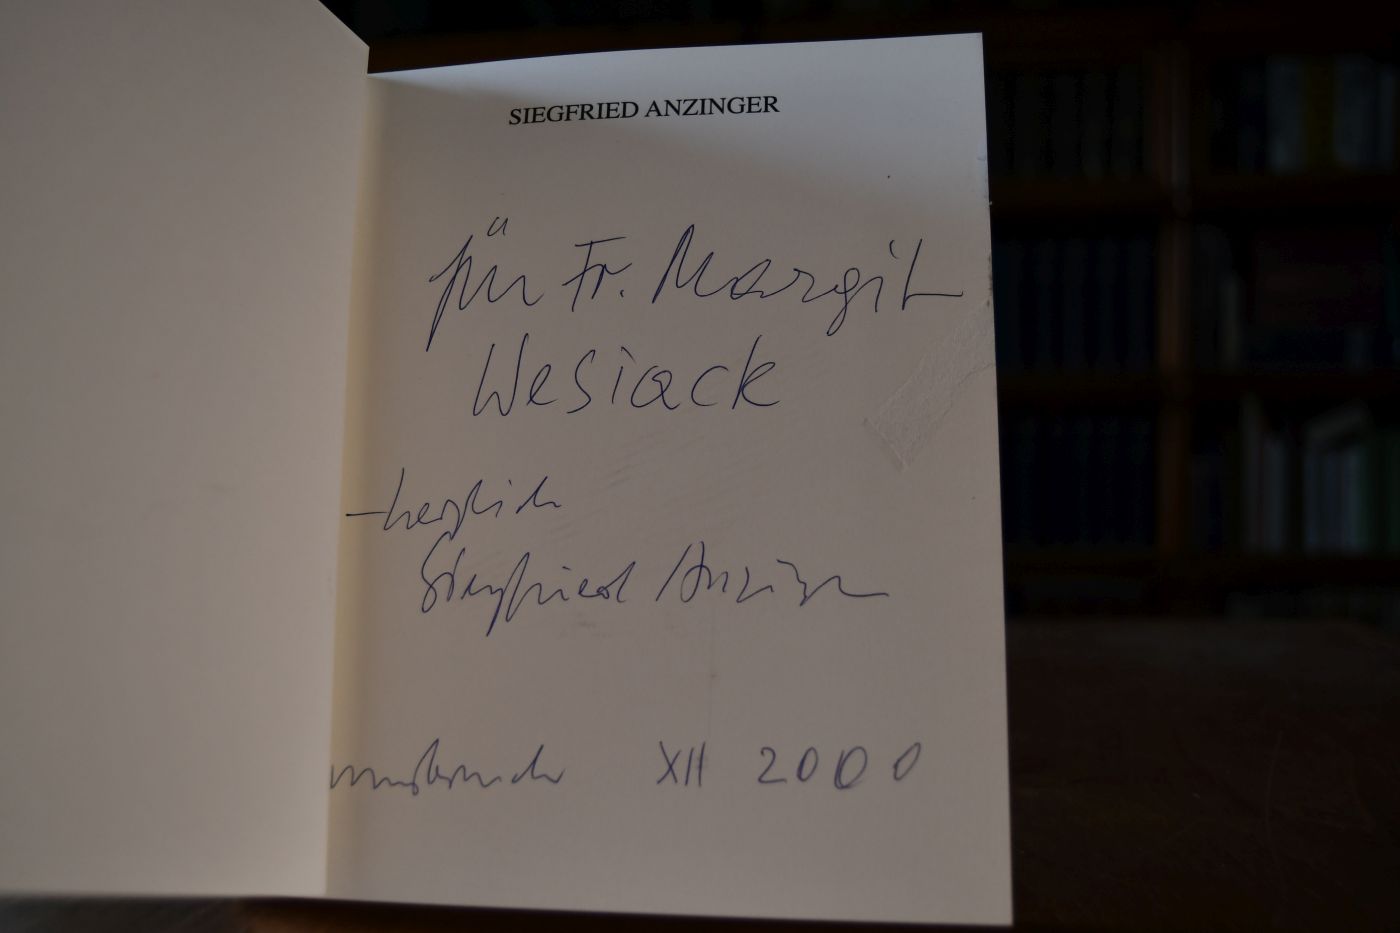 SIEGFRIED ANZINGER
für Fr. Margit
Wesiack
– herzlich
Siegfried Anzinger
Innsbruck XII 2000